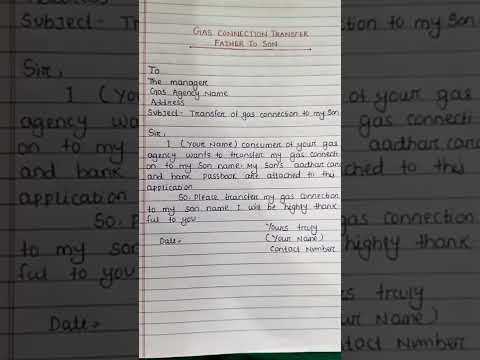 GAS CONNECTION TRANSFER
FATHER TO SON
To
The manager
Gas Agency Name
Address
Subject- Transfer of gas connection to my Son
Sir,
I (Your Name) consumer of your gas
agency wants to transfer my gas connecti
on to my Son name. My Son's aadhar card
and bank passbook are attached to this
application
So, Please transfer my gas connection
to my son name I will be highly thank
ful to you.
Yours truly
Date- (Your Name)
Contact Number